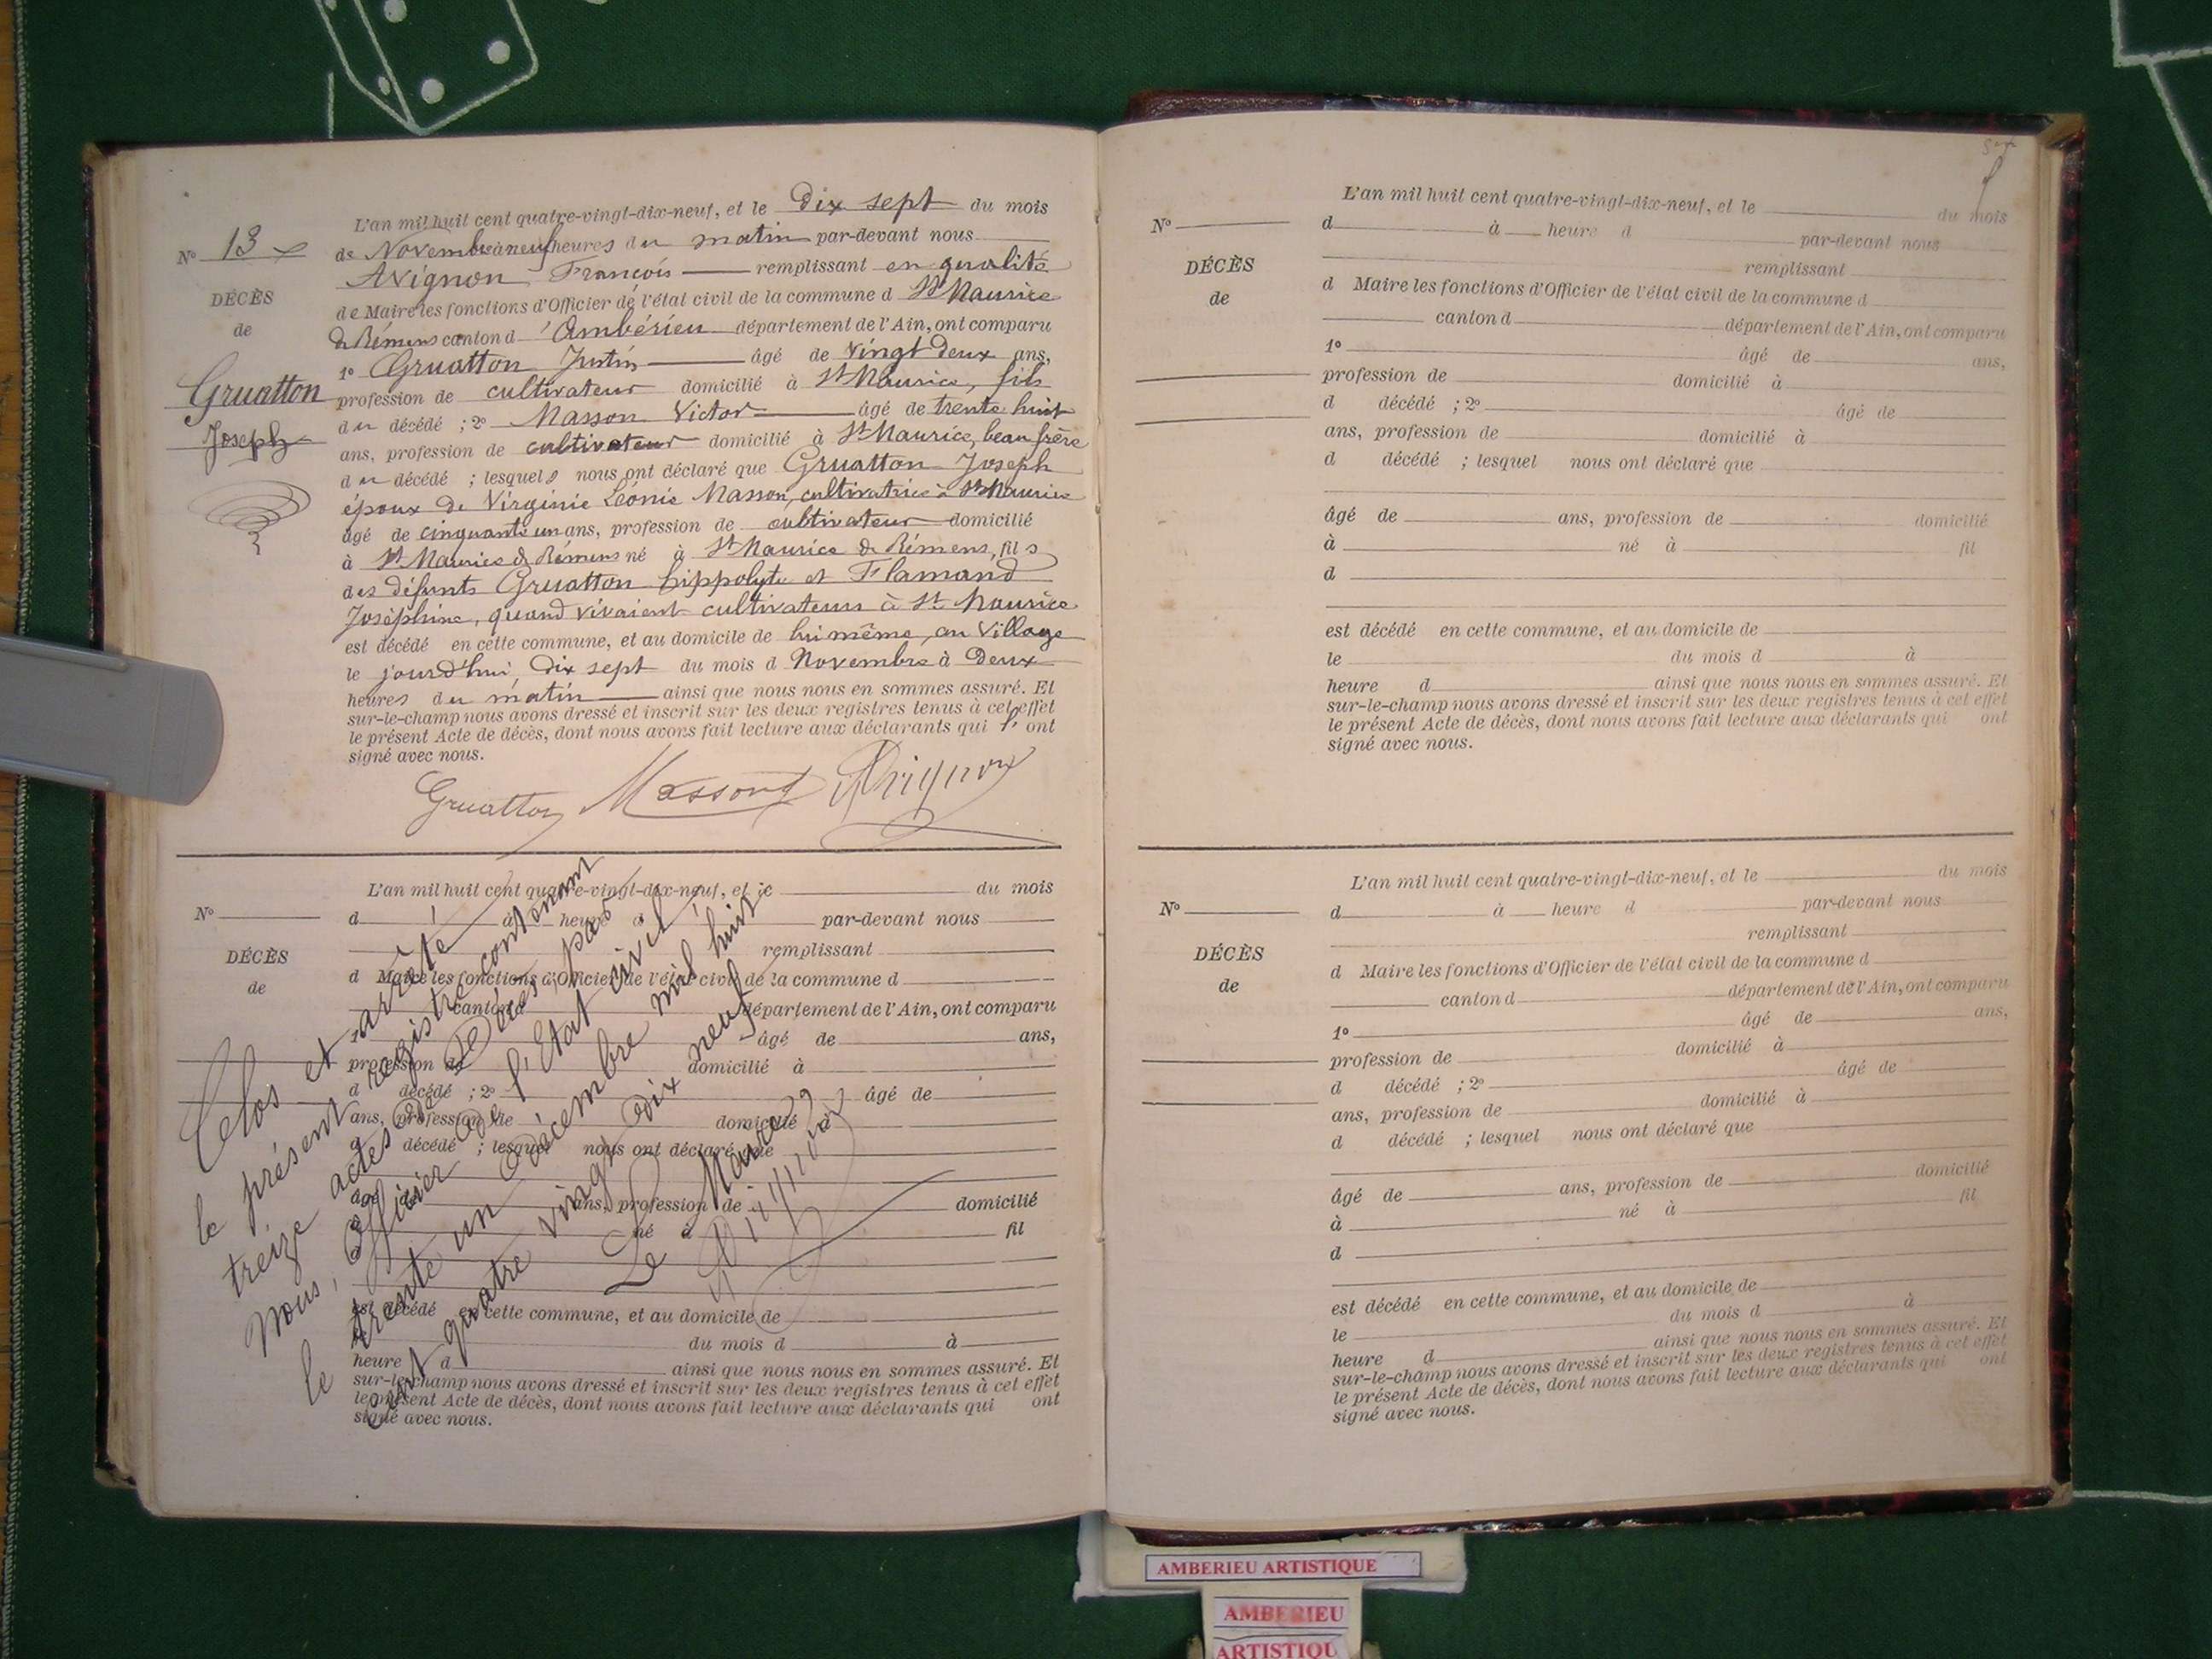 L'an mil huit cent quatre-vingt-dix-neuf, et le Dix sept du mois
N° 13
de Novembre à neuf heures du matin par-devant nous
Avignon François remplissant en qualité
DÉCÈS
de Maire les fonctions d'Officier de l'état civil de la commune d St Maurice
de
de Rémens canton d'Ambérieu département de l'Ain, ont comparu
1° Gruatton Justin âgé de Vingt Deux ans,
Gruatton
profession de cultivateur domicilié à St Maurice, fils
Joseph
du décédé ; 2° Masson Victor âgé de trente huit
ans, profession de cultivateur domicilié à St Maurice, beau frère
du décédé ; lesquels nous ont déclaré que Gruatton Joseph
époux de Virginie Léonie Masson, cultivatrice à St Maurice
âgé de cinquante un ans, profession de cultivateur domicilié
à St Maurice de Rémens né à St Maurice de Rémens, fils
des défunts Gruatton hippolyte et Flamand
Joséphine, quand vivaient cultivateurs à St Maurice
est décédé en cette commune, et au domicile de lui même, au Village
le jourd'hui, Dix sept du mois d Novembre à Deux
heures du matin ainsi que nous nous en sommes assuré. Et
sur-le-champ nous avons dressé et inscrit sur les deux registres tenus à cet effet
le présent Acte de décès, dont nous avons fait lecture aux déclarants qui l' ont
signé avec nous.
Gruatton Masson Avignon
L'an mil huit cent quatre-vingt-dix-neuf, et le du mois
N°
d à heure d par-devant nous
remplissant
DÉCÈS
d Maire les fonctions d'Officier de l'état civil de la commune d
de
canton d département de l'Ain, ont comparu
1° âgé de ans,
profession de domicilié à
d décédé ; 2° âgé de
ans, profession de domicilié à
d décédé ; lesquel nous ont déclaré que
âgé de ans, profession de domicilié
à né à fil
d
est décédé en cette commune, et au domicile de
le du mois d à
heure d ainsi que nous nous en sommes assuré. Et
sur-le-champ nous avons dressé et inscrit sur les deux registres tenus à cet effet
le présent Acte de décès, dont nous avons fait lecture aux déclarants qui ont
signé avec nous.
Clos et arrêté
le présent registre contenant
treize actes de Décès, par
Nous, Officier de l'Etat civil
le trente un Décembre mil huit
cent quatre vingt Dix neuf
Le Maire
Avignon
L'an mil huit cent quatre-vingt-dix-neuf, et le du mois
N°
d à heure d par-devant nous
remplissant
DÉCÈS
d Maire les fonctions d'Officier de l'état civil de la commune d
de
canton d département de l'Ain, ont comparu
1° âgé de ans,
profession de domicilié à
d décédé ; 2° âgé de
ans, profession de domicilié à
d décédé ; lesquel nous ont déclaré que
âgé de ans, profession de domicilié
à né à fil
d
est décédé en cette commune, et au domicile de
le du mois d à
heure d ainsi que nous nous en sommes assuré. Et
sur-le-champ nous avons dressé et inscrit sur les deux registres tenus à cet effet
le présent Acte de décès, dont nous avons fait lecture aux déclarants qui ont
signé avec nous.
L'an mil huit cent quatre-vingt-dix-neuf, et le du mois
N°
d à heure d par-devant nous
remplissant
DÉCÈS
d Maire les fonctions d'Officier de l'état civil de la commune d
de
canton d département de l'Ain, ont comparu
1° âgé de ans,
profession de domicilié à
d décédé ; 2° âgé de
ans, profession de domicilié à
d décédé ; lesquel nous ont déclaré que
âgé de ans, profession de domicilié
à né à fil
d
est décédé en cette commune, et au domicile de
le du mois d à
heure d ainsi que nous nous en sommes assuré. Et
sur-le-champ nous avons dressé et inscrit sur les deux registres tenus à cet effet
le présent Acte de décès, dont nous avons fait lecture aux déclarants qui ont
signé avec nous.
AMBERIEU ARTISTIQUE
AMBERIEU
ARTISTIQU